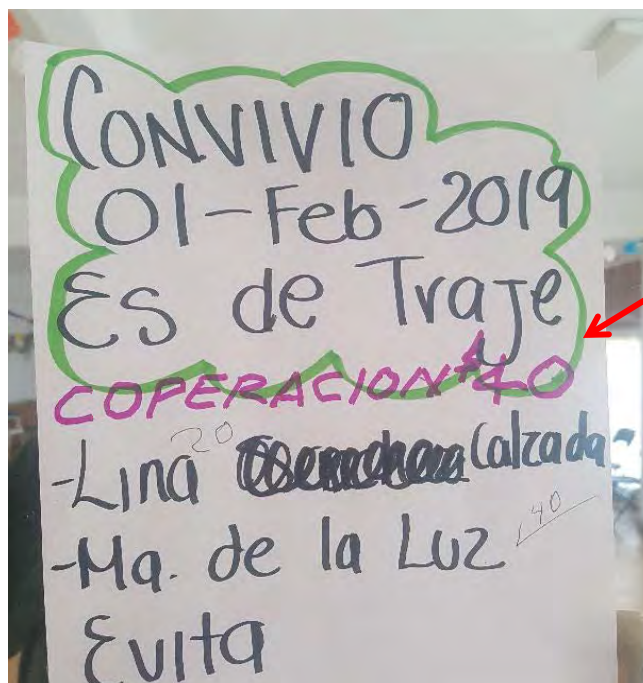 CONVIVIO
01-Feb-2019
Es de Traje
COPERACION $40
20
-Lina Calzada
-Ma. de la Luz 40
Evita